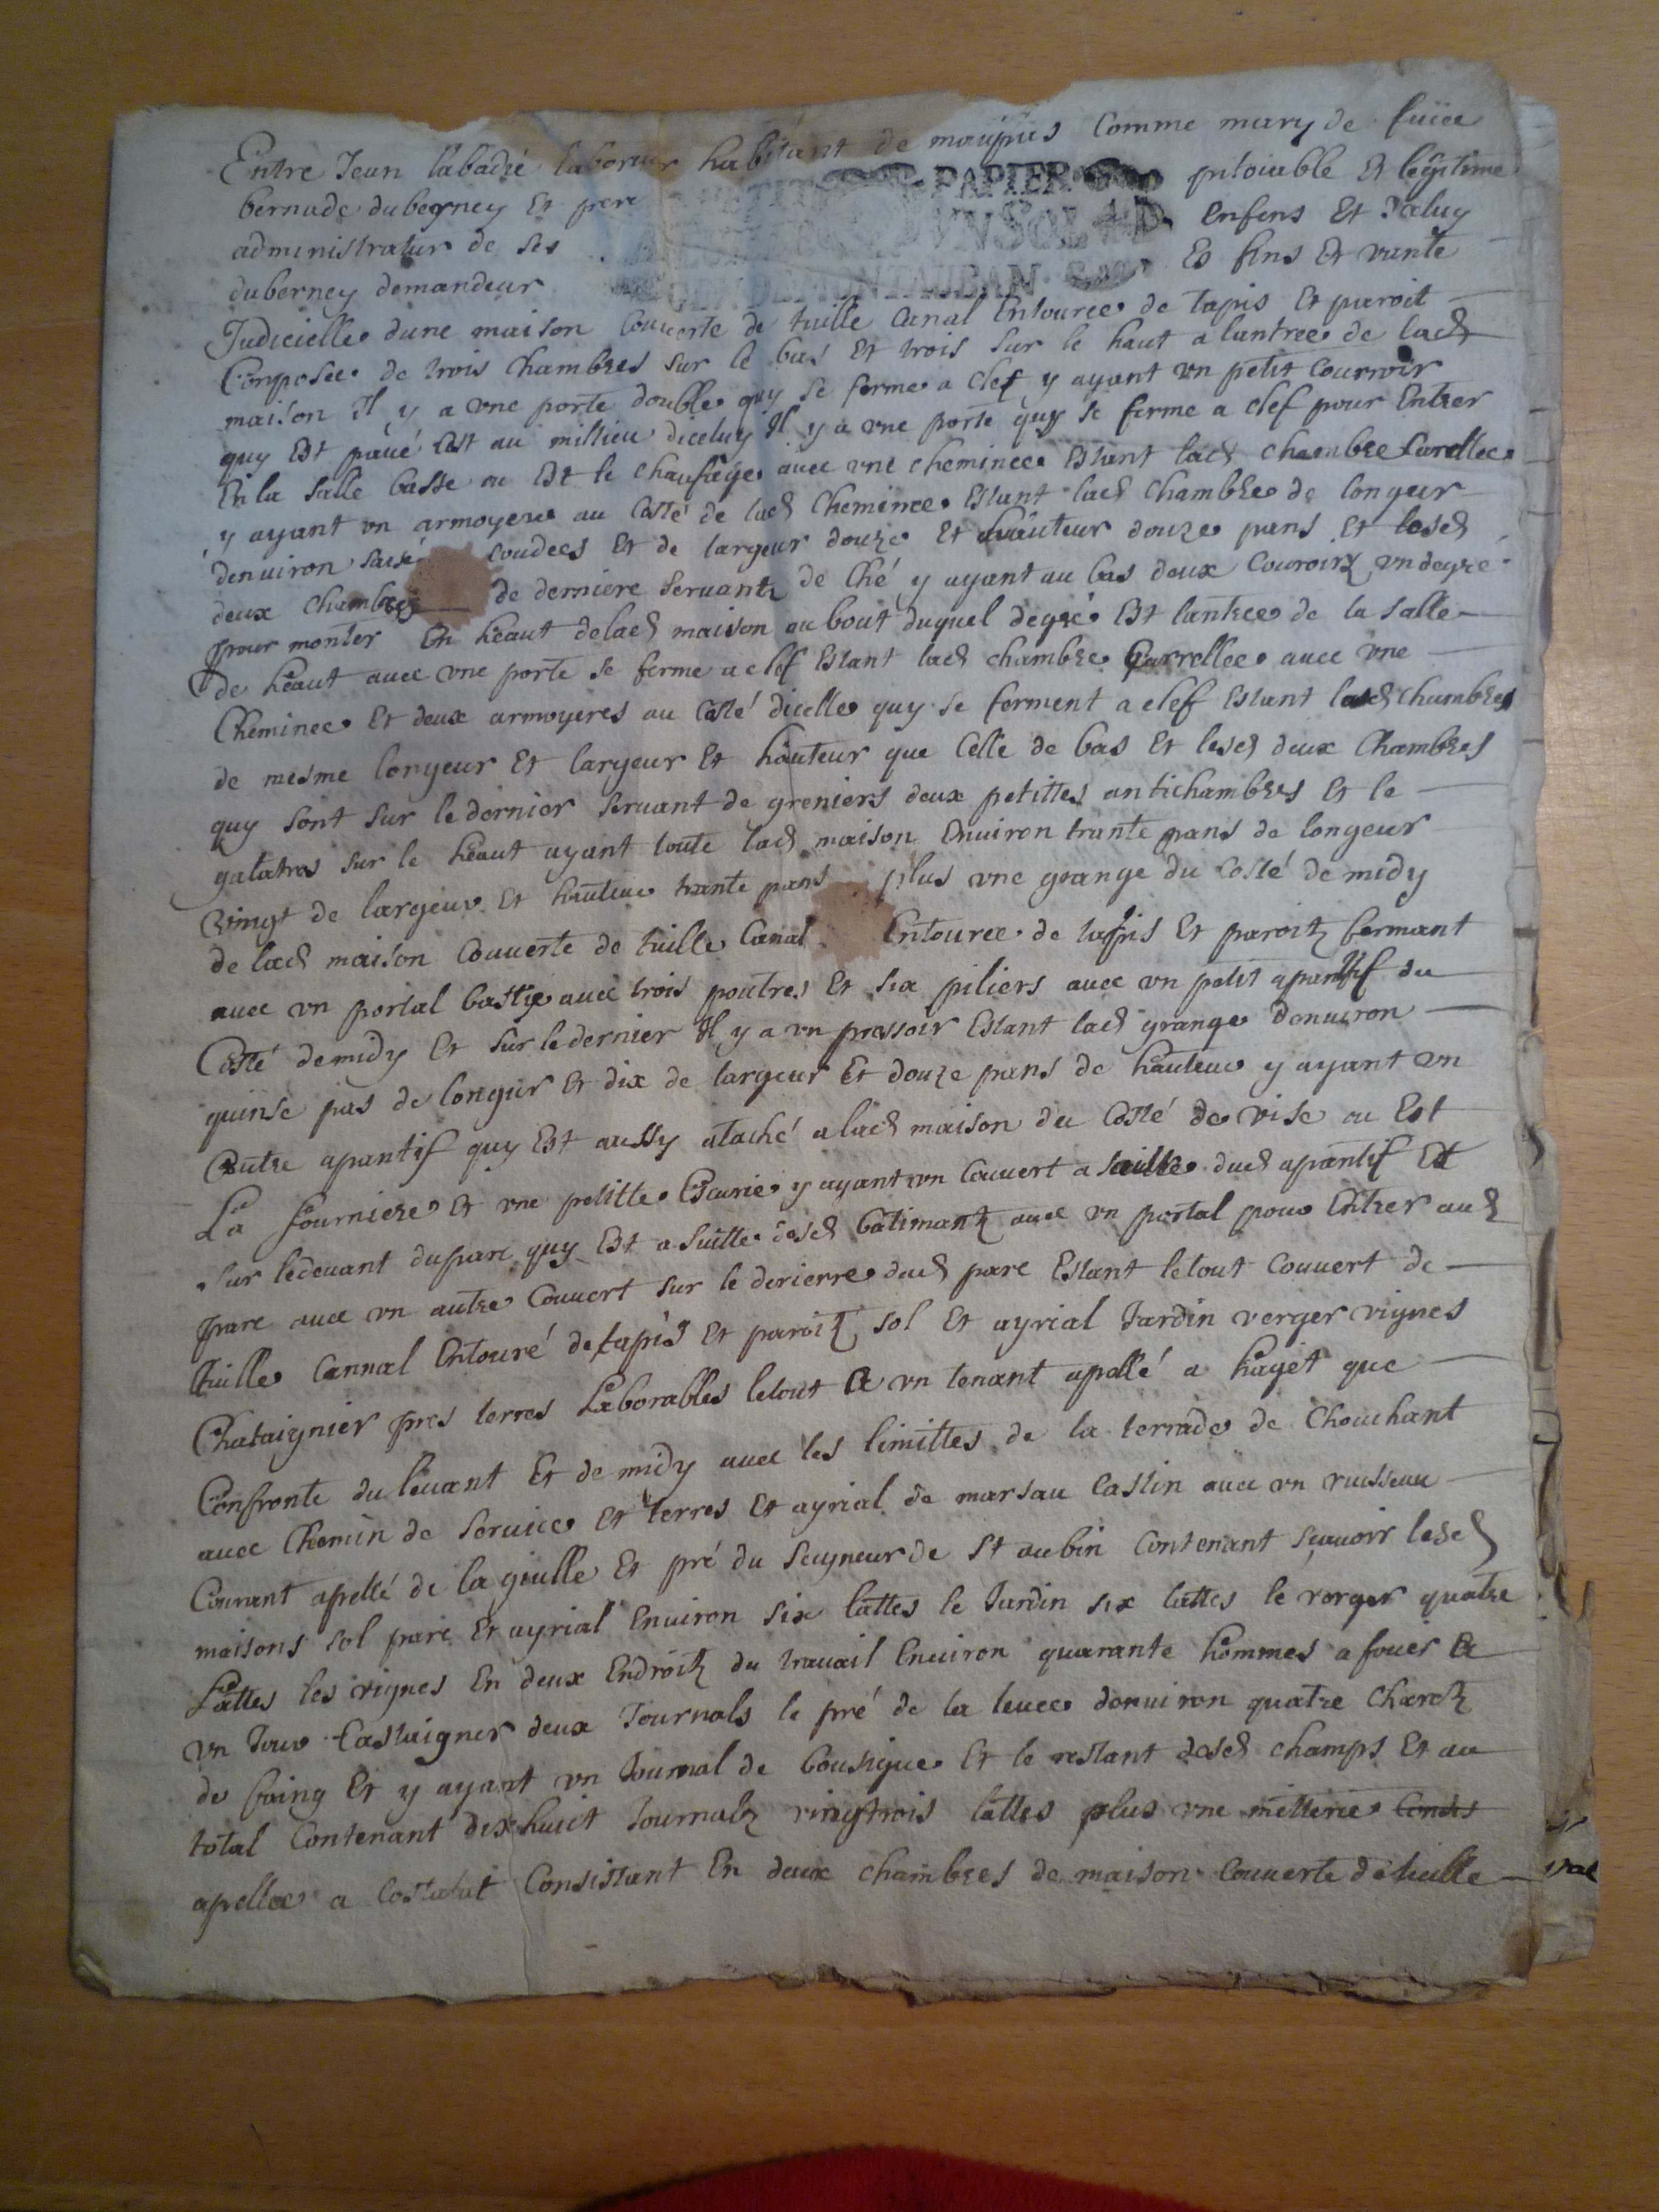 Entre Jean labadié laboreur habitant de maupas Comme mary de fuüe
bernade duberney Et pere
PAPIER
pitoiable Et legitime
administratur de ses
VN SOL 4 D
Enfens Et Daluy
duberney demandeur
DE MONTAUBAN
Es fins Et vante
Judicielle dune maison Couverte de tuille Canal Entouree de tapis Et paroit
Composee de trois Chambres sur le bas Et trois sur le haut a lantree de lad
maison Il y a vne porte double quy se ferme a clef y ayant vn petit Courroir
quy Est pavé Est au millieu diceluy Il y a vne porte quy se ferme a clef pour Entrer
En la salle basse ou Est le chaufage avec vne cheminee Estant lad chambre Carellee
y ayant vn armoyere au Costé de lad Cheminee Estant lad Chambre de longeur
denviron saise coudees Et de largeur douze Et hauteur douze pans Et lesd
deux chambres de derniere servantz de Ché y ayant au bas deux Couroirz vn degré
pour monter En heaut delad maison au bout duquel degré Est lantree de la salle
de heaut avec vne porte se ferme a clef Estant lad chambre Carrellee avec vne
Cheminee Et deux armoyeres au Costé dicelle quy se ferment a clef Estant lad chambres
de mesme longeur Et largeur Et hauteur que Celle de bas Et lesd deux Chambres
quy sont sur le dernier servant de greniers deux petittes antichambres Et le
galatas sur le heaut ayant toute lad maison Environ trante pans de longeur
vingt de largeur Et hauteur trante pans plus vne grange du Costé de midy
de lad maison Couverte de tuille Canal Entouree de tapis Et paroitz fermant
avec vn portal bastye avec trois poutres Et six piliers avec vn petit apantif du
Costé de midy Et sur le dernier Il y a vn pressoir Estant lad grange denviron
quinse pas de longur Et dix de largeur Et douze pans de hauteur y ayant vn
autre apantif quy Est aussy ataché a lad maison du Costé de vise ou Est
La fourniere Et vne petitte Escurie y ayant vn Couvert a suitte dud apantif Et
sur le devant du parc quy Est a suitte desd batimantz avec vn portal pour Entrer aud
parc avec vn autre Couvert sur le derierre dud parc Estant le tout Couvert de
tuille Cannal Entouré de tapis Et paroitz sol Et ayrial Jardin verger vignes
Chataignier pres terres Laborables le tout a vn tenant apellé a hayet que
Confronte du levant Et de midy avec les limittes de la terrade de Chouchant
avec Chemin de service Et terres Et ayrial de marsau Castin avec vn ruisseau
Courant apellé de la giulle Et pré du Seigneur de St aubin Contenant scavoir lesd
maisons sol parc Et ayrial Environ six lattes le Jardin six lattes le verger quatre
Lattes les vignes En deux Endroitz du travail Environ quarante hommes a fouir a
vn Jour Castaigner deux Journals le pré de la levee denviron quatre charetz
de foing Et y ayant vn Journal de bousigue Et le restant desd champs Et au
total Contenant dix huict Journalz vingtrois lattes plus vne mitterie
apellee a Costalat Consistant En deux chambres de maison Couverte de tuille